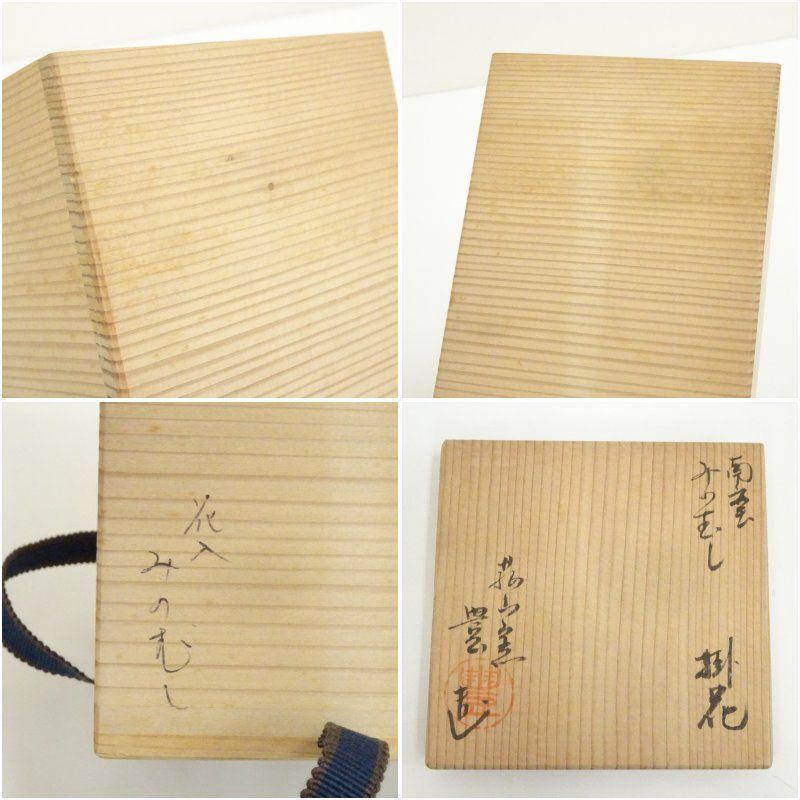 花入
みのむし
南蛮
みのむし
掛花
窯
豊